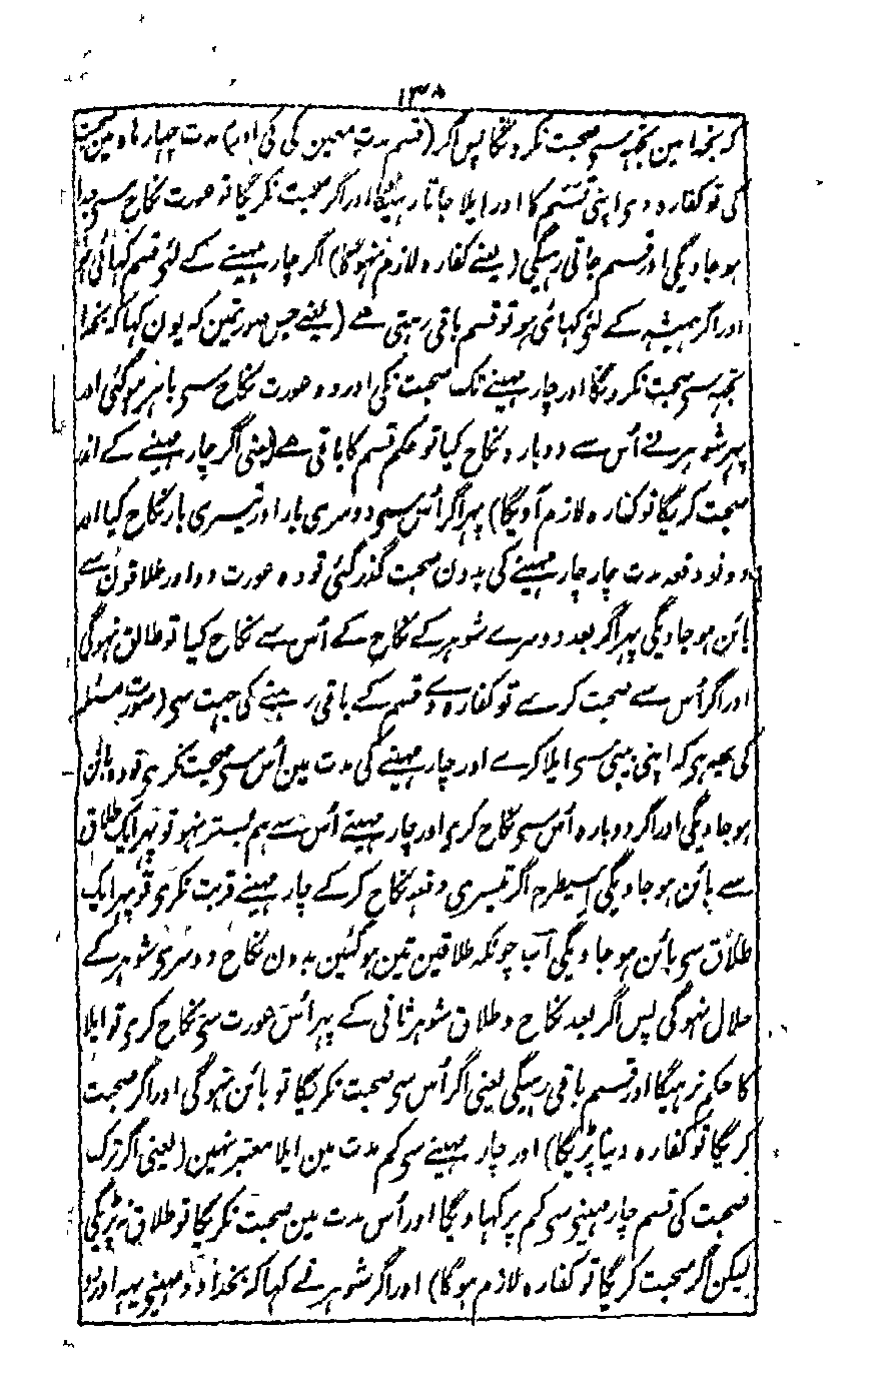 ۱۳۸
کہ بخدا مین تجہہ سی صحبت نکرونگا پس اگر (قسم مدت معین کی کی اور) مدت چہار ماہ مین صحبت
کی تو کفارہ دی اپنی قسم کا اور ایلا جاتا رہیگا اور اگر صحبت نکریگا تو عورت نکاح سی جدا
ہو جاویگی اور قسم جاتی رہیگی (یعنے کفارہ لازم نہوگا) اگر چار مہینے کے لئی قسم کہائی ہو
اور اگر ہمیشہ کے لئی کہائی ہو تو قسم باقی رہتی ہے (یعنے جس صورتمین کہ یون کہا کہ بخدا
تجہہ سی صحبت نکرونگا اور چار مہینے تک صحبت نکی اور وہ عورت نکاح سی باہر ہو گئی اور
پہر شوہر نے اُس سے دوبارہ نکاح کیا تو حکم قسم کا باقی ہے (یعنی اگر چار مہینے کے اندر
صحبت کریگا تو کفارہ لازم آویگا) پہر اگر اُس سی دوسری بار اور تیسری بار نکاح کیا اور
دونو دفعہ مدت چار چار مہینے کی بدون صحبت گذر گئی تو وہ عورت دو اور طلاقون سے
بائن ہو جاویگی پہر اگر بعد دوسرے شوہر کے نکاح کے اُس سے نکاح کیا تو طالق نہوگی
اور اگر اُس سے صحبت کرے تو کفارہ دے قسم کے باقی رہنے کی جہت سی (صورت مسئلہ
کی یہہ ہی کہ اپنی بیبی سی ایلا کرے اور چار مہینے کی مدت مین اُس سی صحبت نکری تو وہ بائن
ہو جاویگی اور اگر دوبارہ اُس سی نکاح کری اور چار مہینے اُس سے ہم بستر نہو تو پہر ایک طلاق
سے بائن ہو جاویگی اسیطرح اگر تیسری دفعہ نکاح کرکے چار مہینے قربت نکری تو پہر ایک
طلاق سی بائن ہو جاویگی اب چونکہ طلاقین تین ہو گئین بدون نکاح دوسری شوہر کے
حلال نہوگی پس اگر بعد نکاح و طلاق شوہر ثانی کے پہر اُس عورت سی نکاح کری تو ایلا
کا حکم نرہیگا اور قسم باقی رہیگی یعنی اگر اُس سی صحبت نکریگا تو بائن نہوگی اور اگر صحبت
کریگا تو کفارہ دینا پڑیگا) اور چار مہینے سی کم مدت مین ایلا معتبر نہین (یعنی اگر ترک
صحبت کی قسم چار مہینی سی کم پر کہاویگا اور اُس مدت مین صحبت نکریگا تو طلاق نہ پڑیگی
لیکن اگر صحبت کریگا تو کفارہ لازم ہوگا) اور اگر شوہر نے کہا کہ بخدا دو مہینی یہہ اور دو